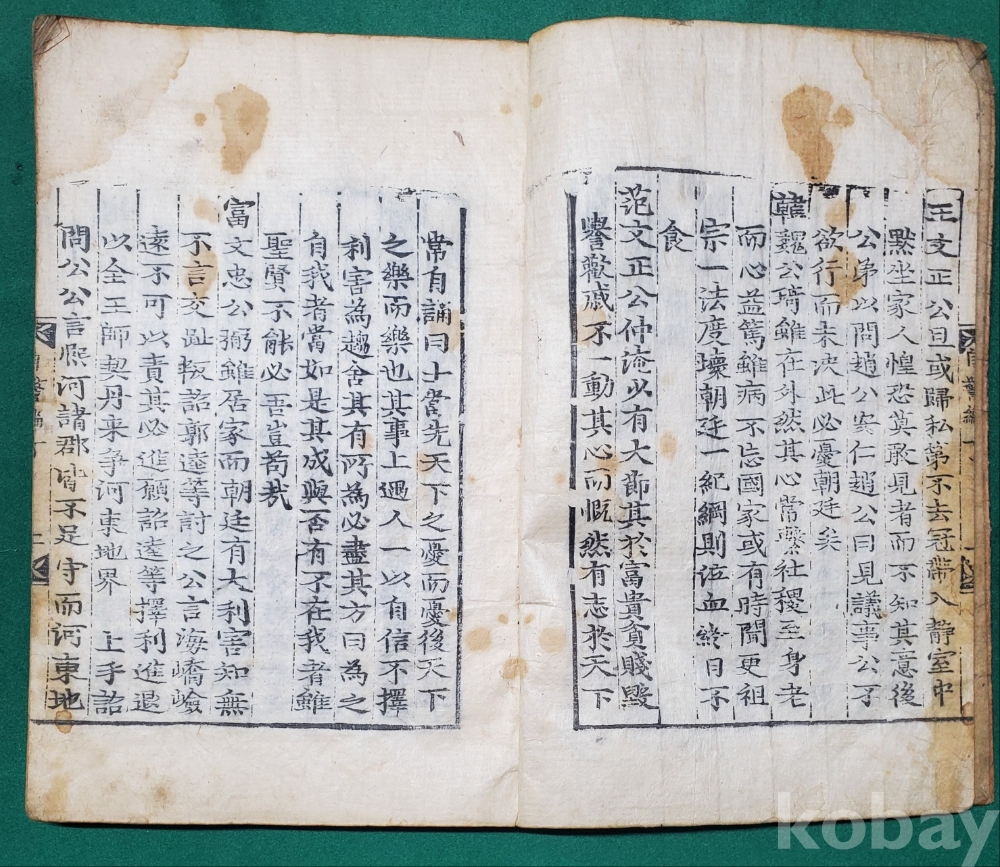 王文正公旦或歸私第不去冠帶入静室中
默坐家人惶恐莫敢見者而不知其意後
公弟以問趙公安仁趙公曰見議事公不
欲行而未决此必憂朝廷矣
韓魏公琦雖在外然其心常繫社稷至身老
而心益篤雖病不忘國家或有時聞更祖
宗一法度壞朝廷一紀綱則泣血終日不
食
范文正公仲淹少有大節其於富貴貧賤毁
譽歡戚不一動其心而慨然有志於天下
常自誦曰士當先天下之憂而憂後天下
之樂而樂也其事上遇人一以自信不擇
利害為趨舍其有所為必盡其方曰為之
自我者當如是其成與否有不在我者雖
聖賢不能必吾豈苟哉
富文忠公弼雖居家而朝廷有大利害知無
不言交趾叛詔郭逵等討之公言海嶠嶮
遠不可以責其必進願詔逵等擇利進退
以全王師契丹来爭河東地界 上手詔
問公公言熈河諸郡皆不足守而河東地
自警編
kobay